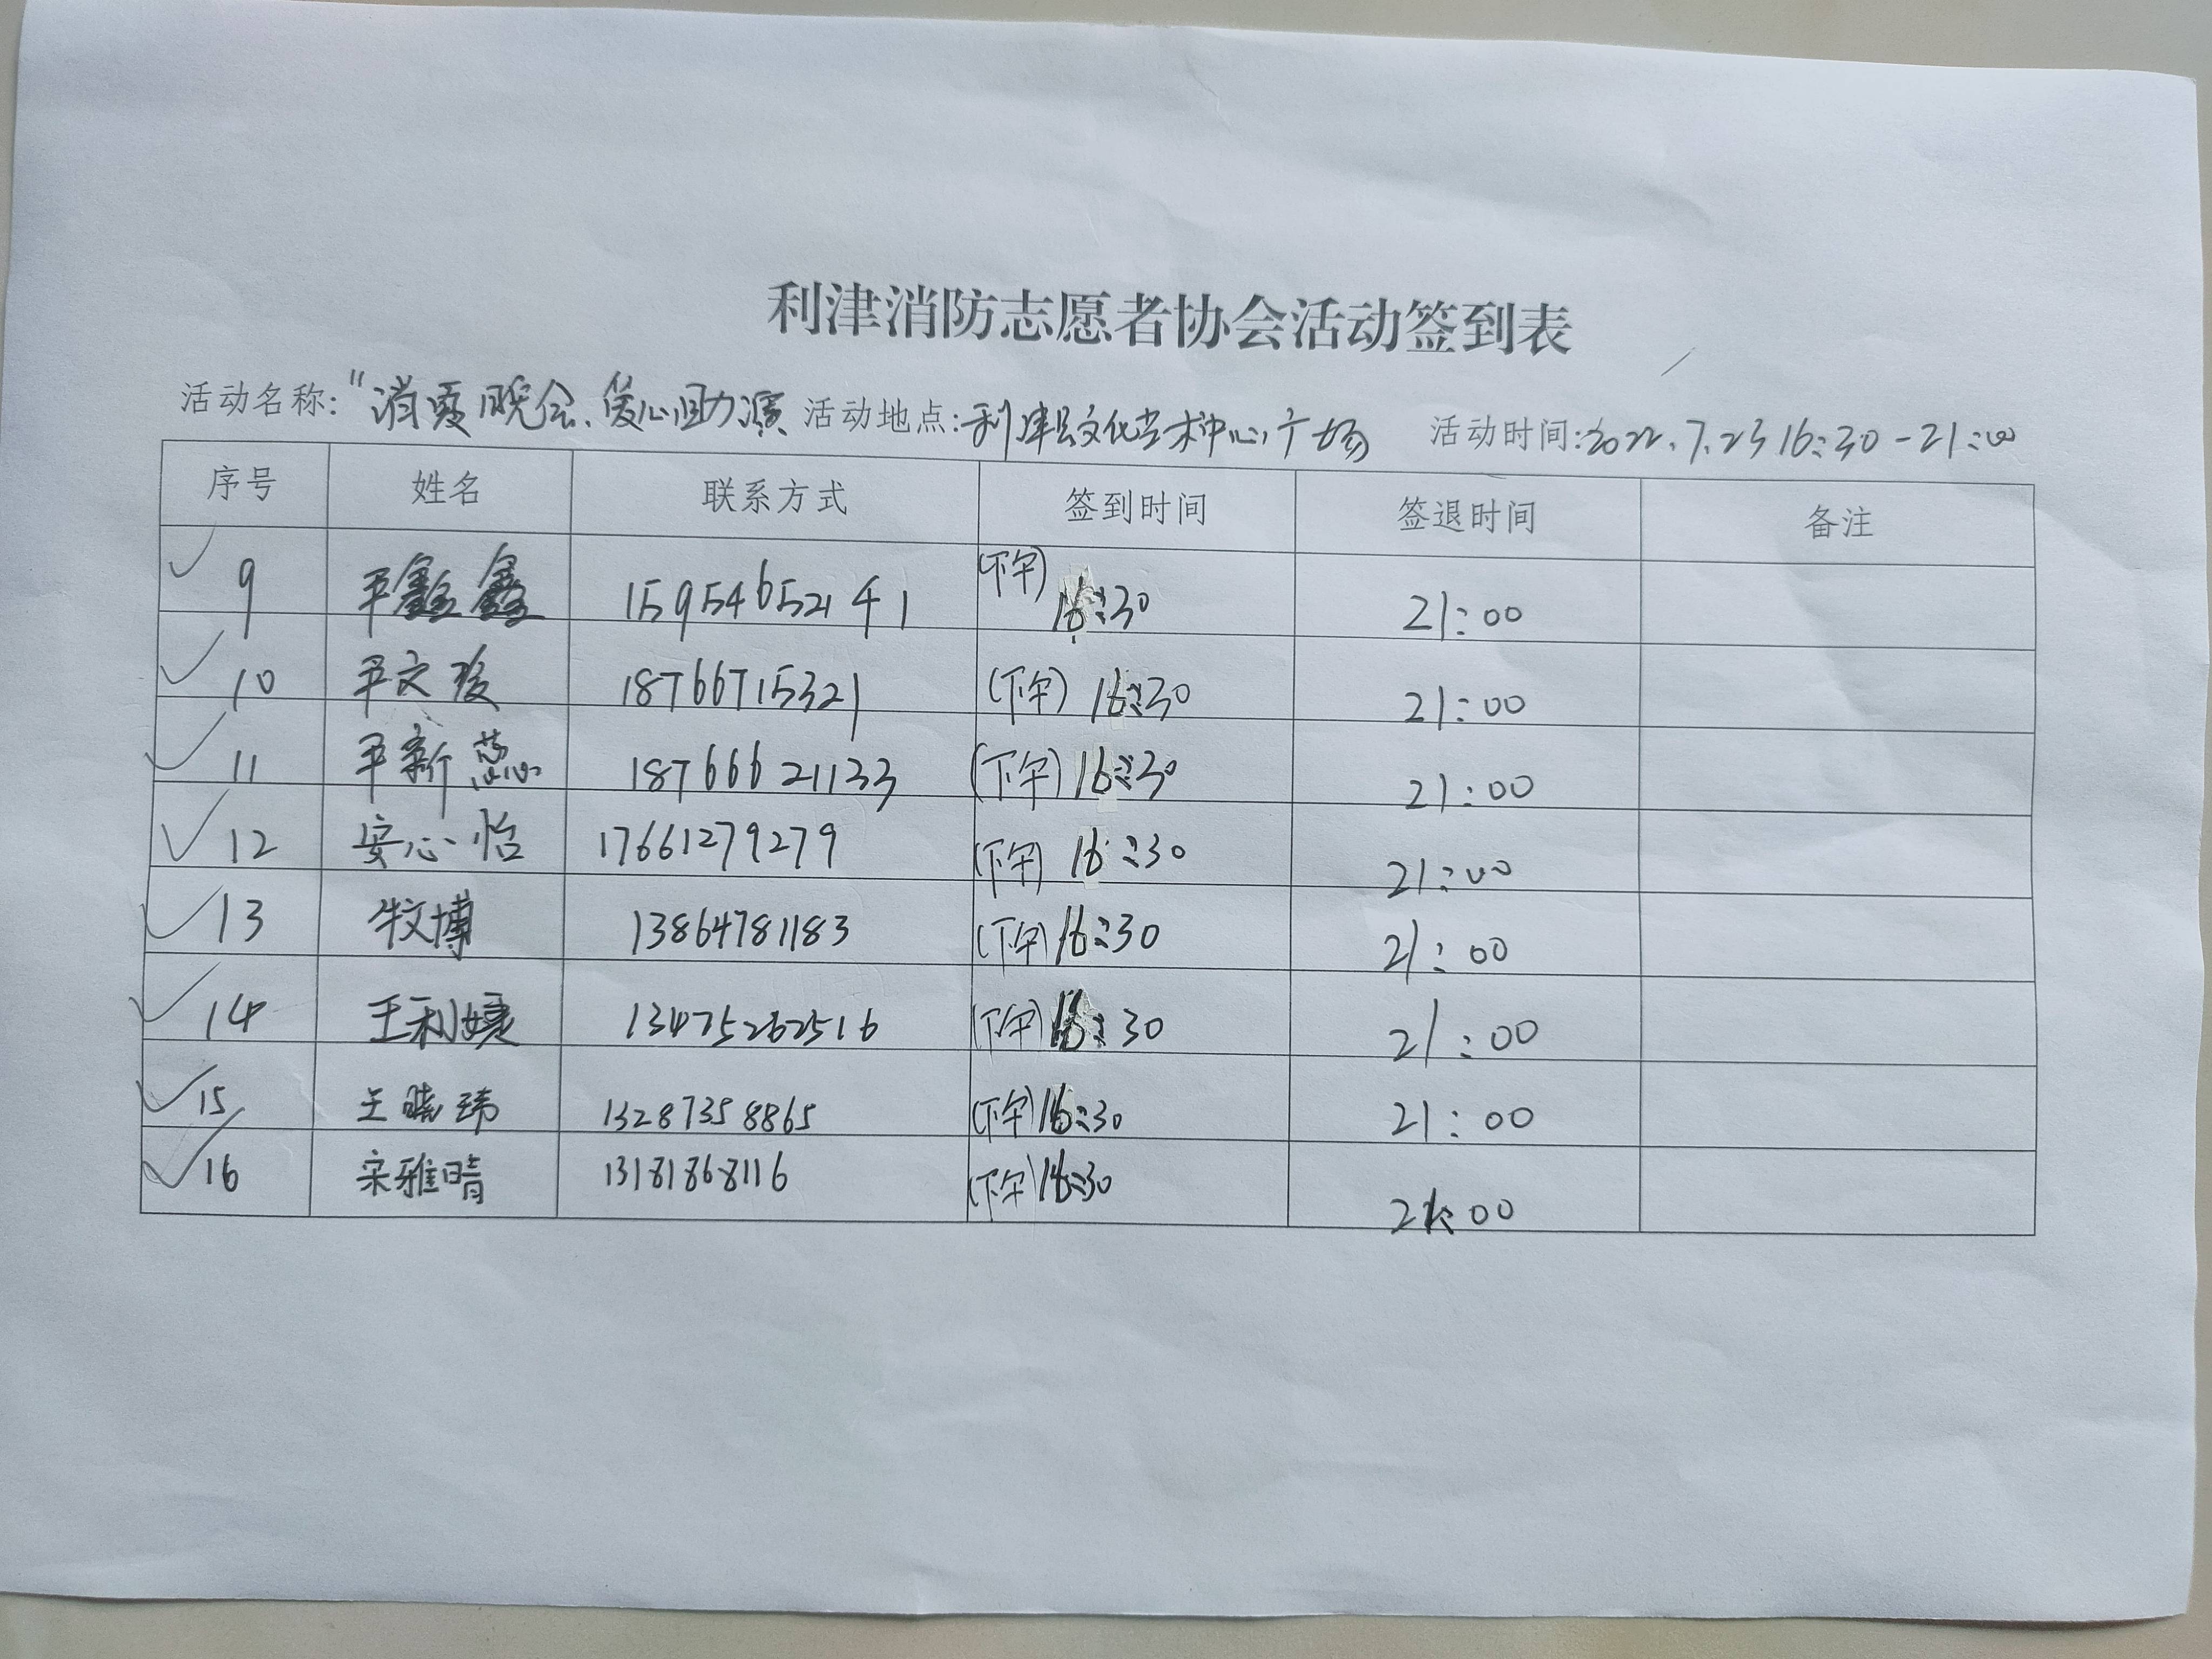 利津消防志愿者协会活动签到表
活动名称:"消夏晚会、爱心助演 活动地点:利津县文化艺术中心广场 活动时间:2022.7.23 16:30-21:00
序号 姓名 联系方式 签到时间 签退时间 备注
9 平鑫鑫 15954652141 (下午) 16:30 21:00
10 平文 18766715321 (下午) 16:30 21:00
11 平新蕊 18766621133 (下午) 16:30 21:00
12 安心怡 17661279279 (下午) 16:30 21:00
13 牧博 13864781183 (下午) 16:30 21:00
14 王利婕 13475262516 (下午) 16:30 21:00
15 王晓玮 13287358865 (下午) 16:30 21:00
16 宋雅晴 13181868116 (下午) 16:30 21:00